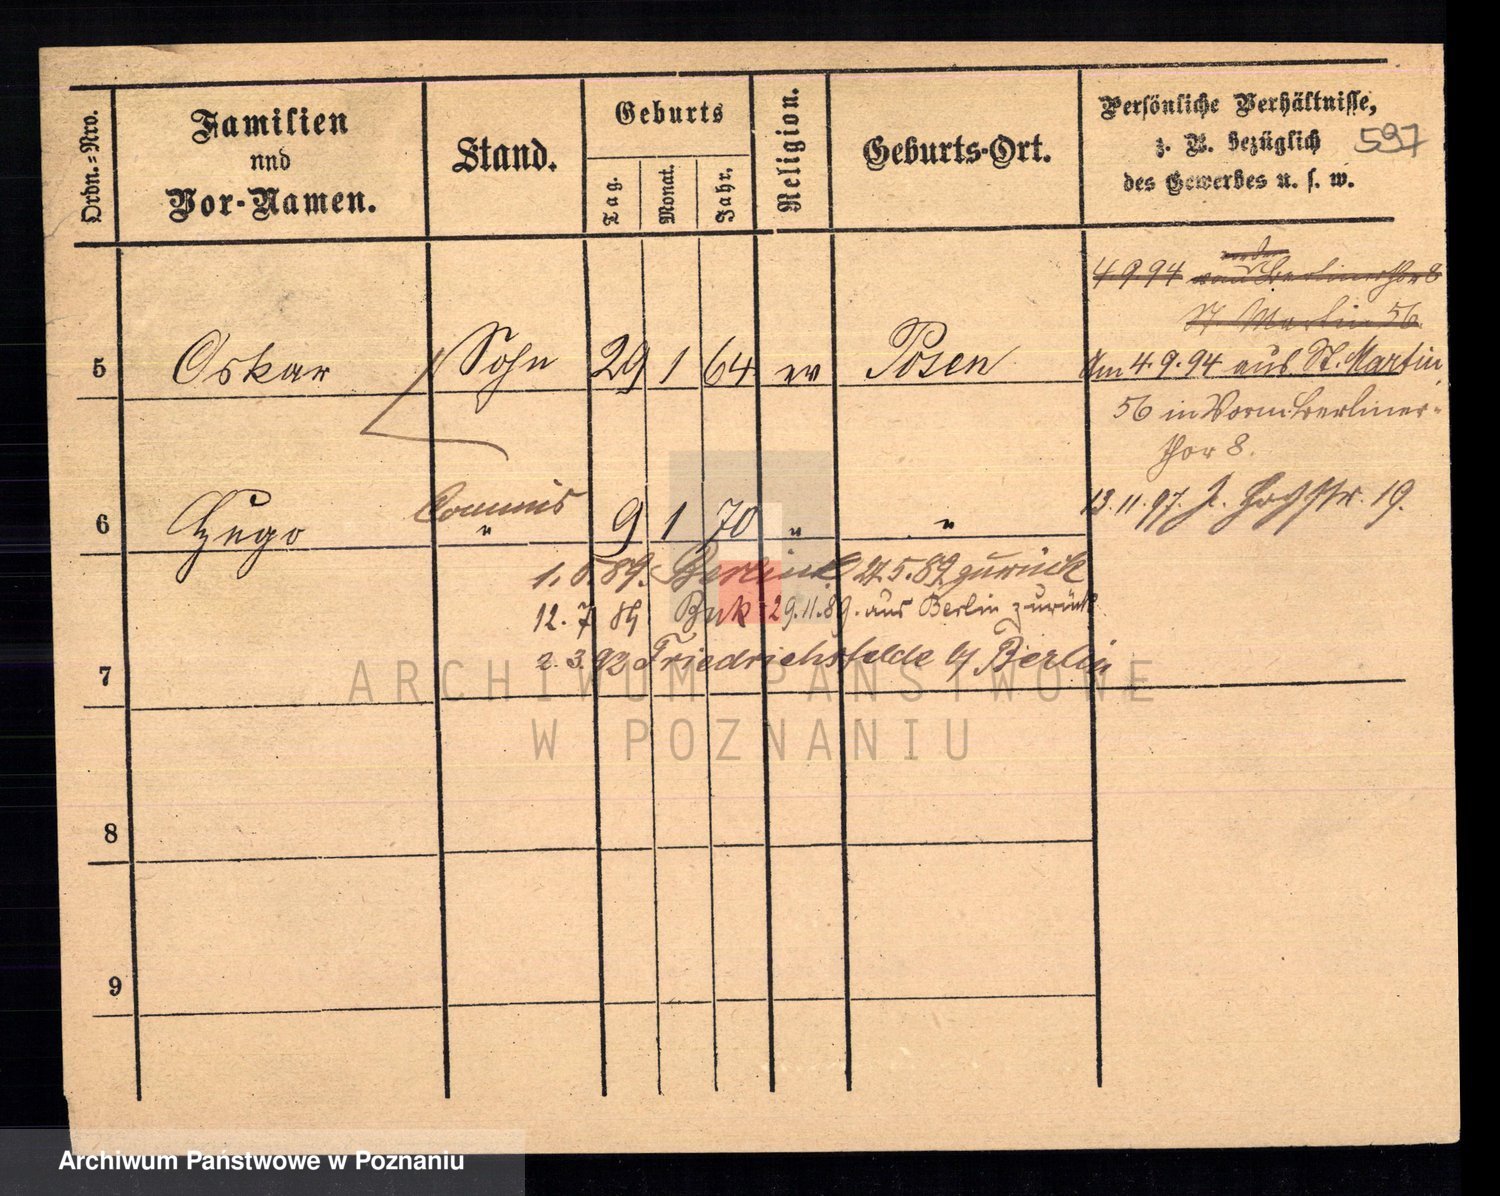 Ordn.=Nro.
Familien
und
Vor-Namen.
Stand.
Geburts
Tag.
Monat.
Jahr.
Religion.
Geburts-Ort.
Persönliche Verhältnisse,
z. B. bezüglich
des Gewerbes u. s. w.
597
4 9 94 Berlinerthor 8
St Martin 56.
5 Oskar Sohn 29 1 64 ev Posen
Am 4.9.94 aus St. Martin
56 in Vorm Berliner-
thor 8.
Commis
6 Hugo " 9 1 70 " "
13.11.97. 19.
1.5.89. Berlin 27.5.89 zurück
12.7 89 Buk 29.11.89. aus Berlin zurück
2.3.92 Friedrichsfelde b/ Berlin
7
8
9
ARCHIWUM PAŃSTWOWE
W POZNANIU
Archiwum Państwowe w Poznaniu